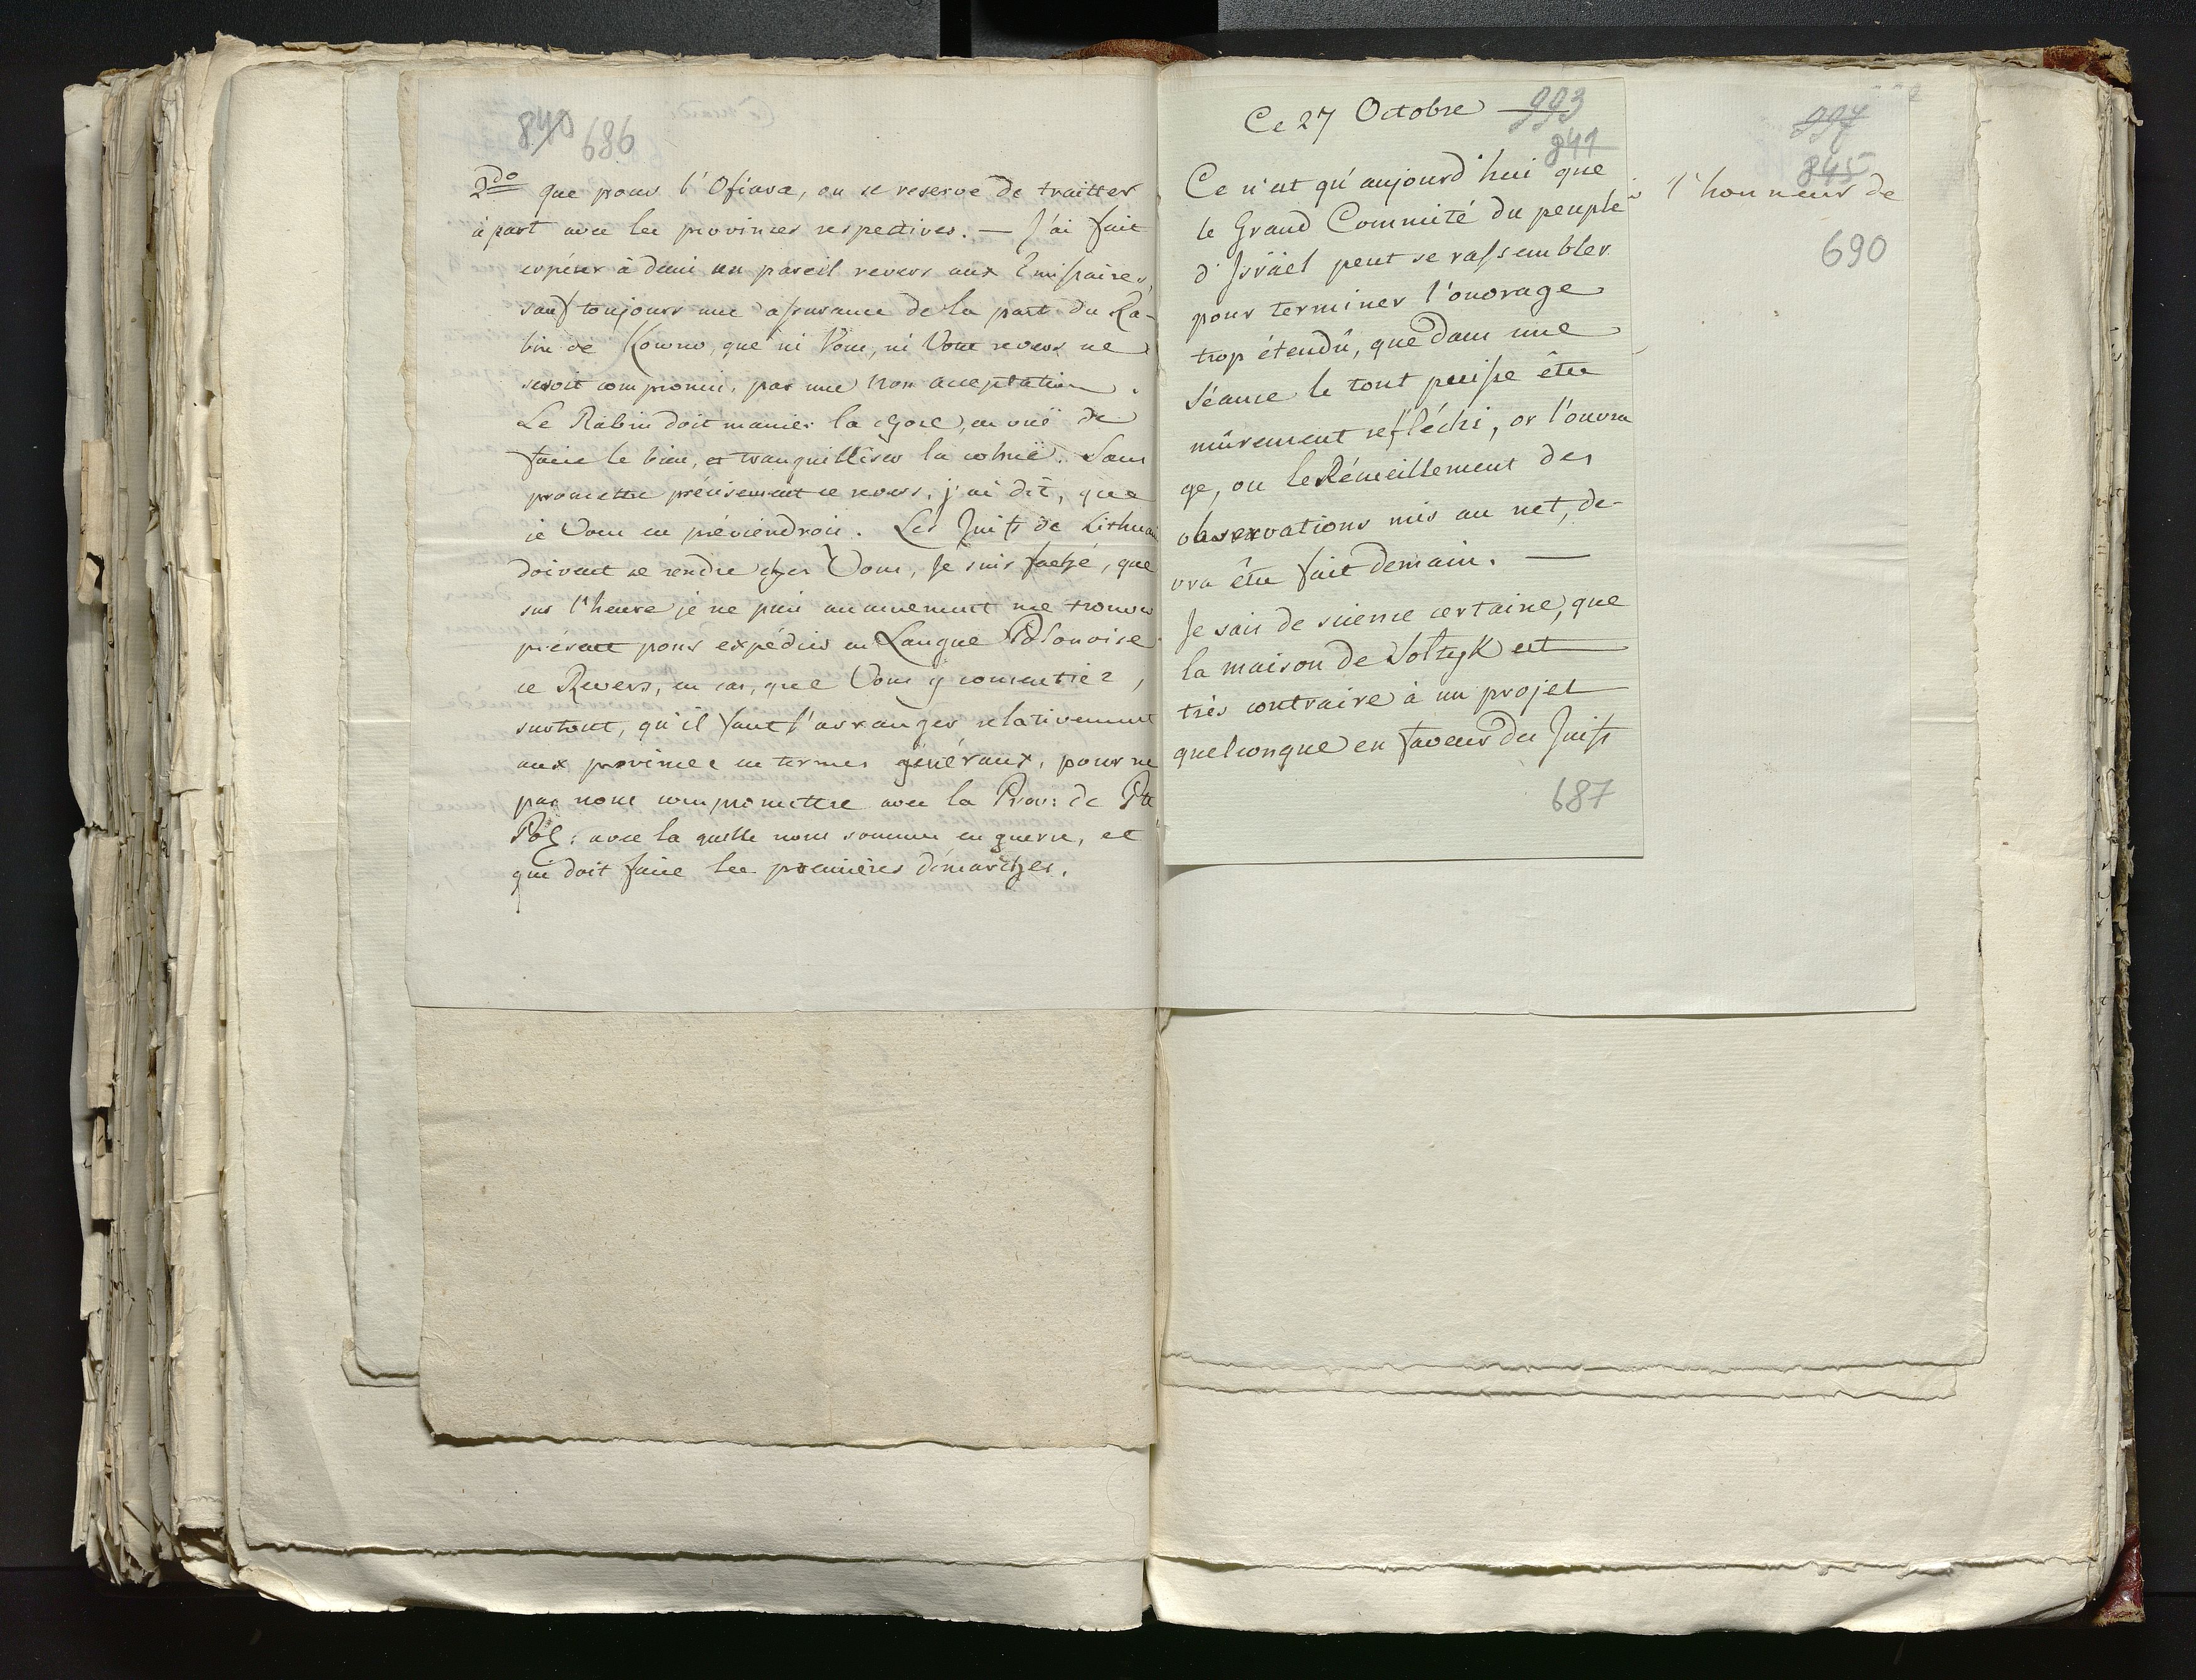 840 686
2do que pour l'Ofiara, on se reserve de traitter
à part avec les provinces respectives. — J'ai fait
espérer à demi un pareil revers aux Emissaires,
sauf toujours une assurance de la part du Ra-
bin de Kowno, que ni Vous, ni Votre revers ne
seroit compromis, par une non acceptation.
Le Rabin doit manier la chose, en vuë de
faire le bien, et tranquilliser la cohuë. Sans
promettre précisement ce revers, j'ai dit, que
je Vous en préviendrois. Les Juifs de Lithuan
doivent se rendre chez Vous, Je suis faché, que
sur l'heure je ne puis aucunement me trouver
présent pour expédier en Langue Polonoise
ce Revers, en cas, que Vous y consentiez,
surtout, qu'il faut l'arranger relativement
aux provinces en termes généraux, pour ne
pas nous compromettre avec la Prov: de Ptte
Pol: avec la quelle nous sommes en guerre, et
qui doit faire les premières démarches.
Ce 27 Octobre 993
841
Ce n'est qu'aujourd'hui que
le Grand Commité du peuple
d'Isräel peut se rassembler
pour terminer l'ouvrage
trop étendû, que dans une
Séance le tout puisse être
mûrement refléchi, or l'ouvra
ge, ou le Réeueillement des
observations mis au net, de-
vra être fait demain. —
Je sais de science certaine, que
la maison de Soltyk est
très contraire à un projet
quelconque en faveur des Juifs
687
997
845
l'honneur de
690